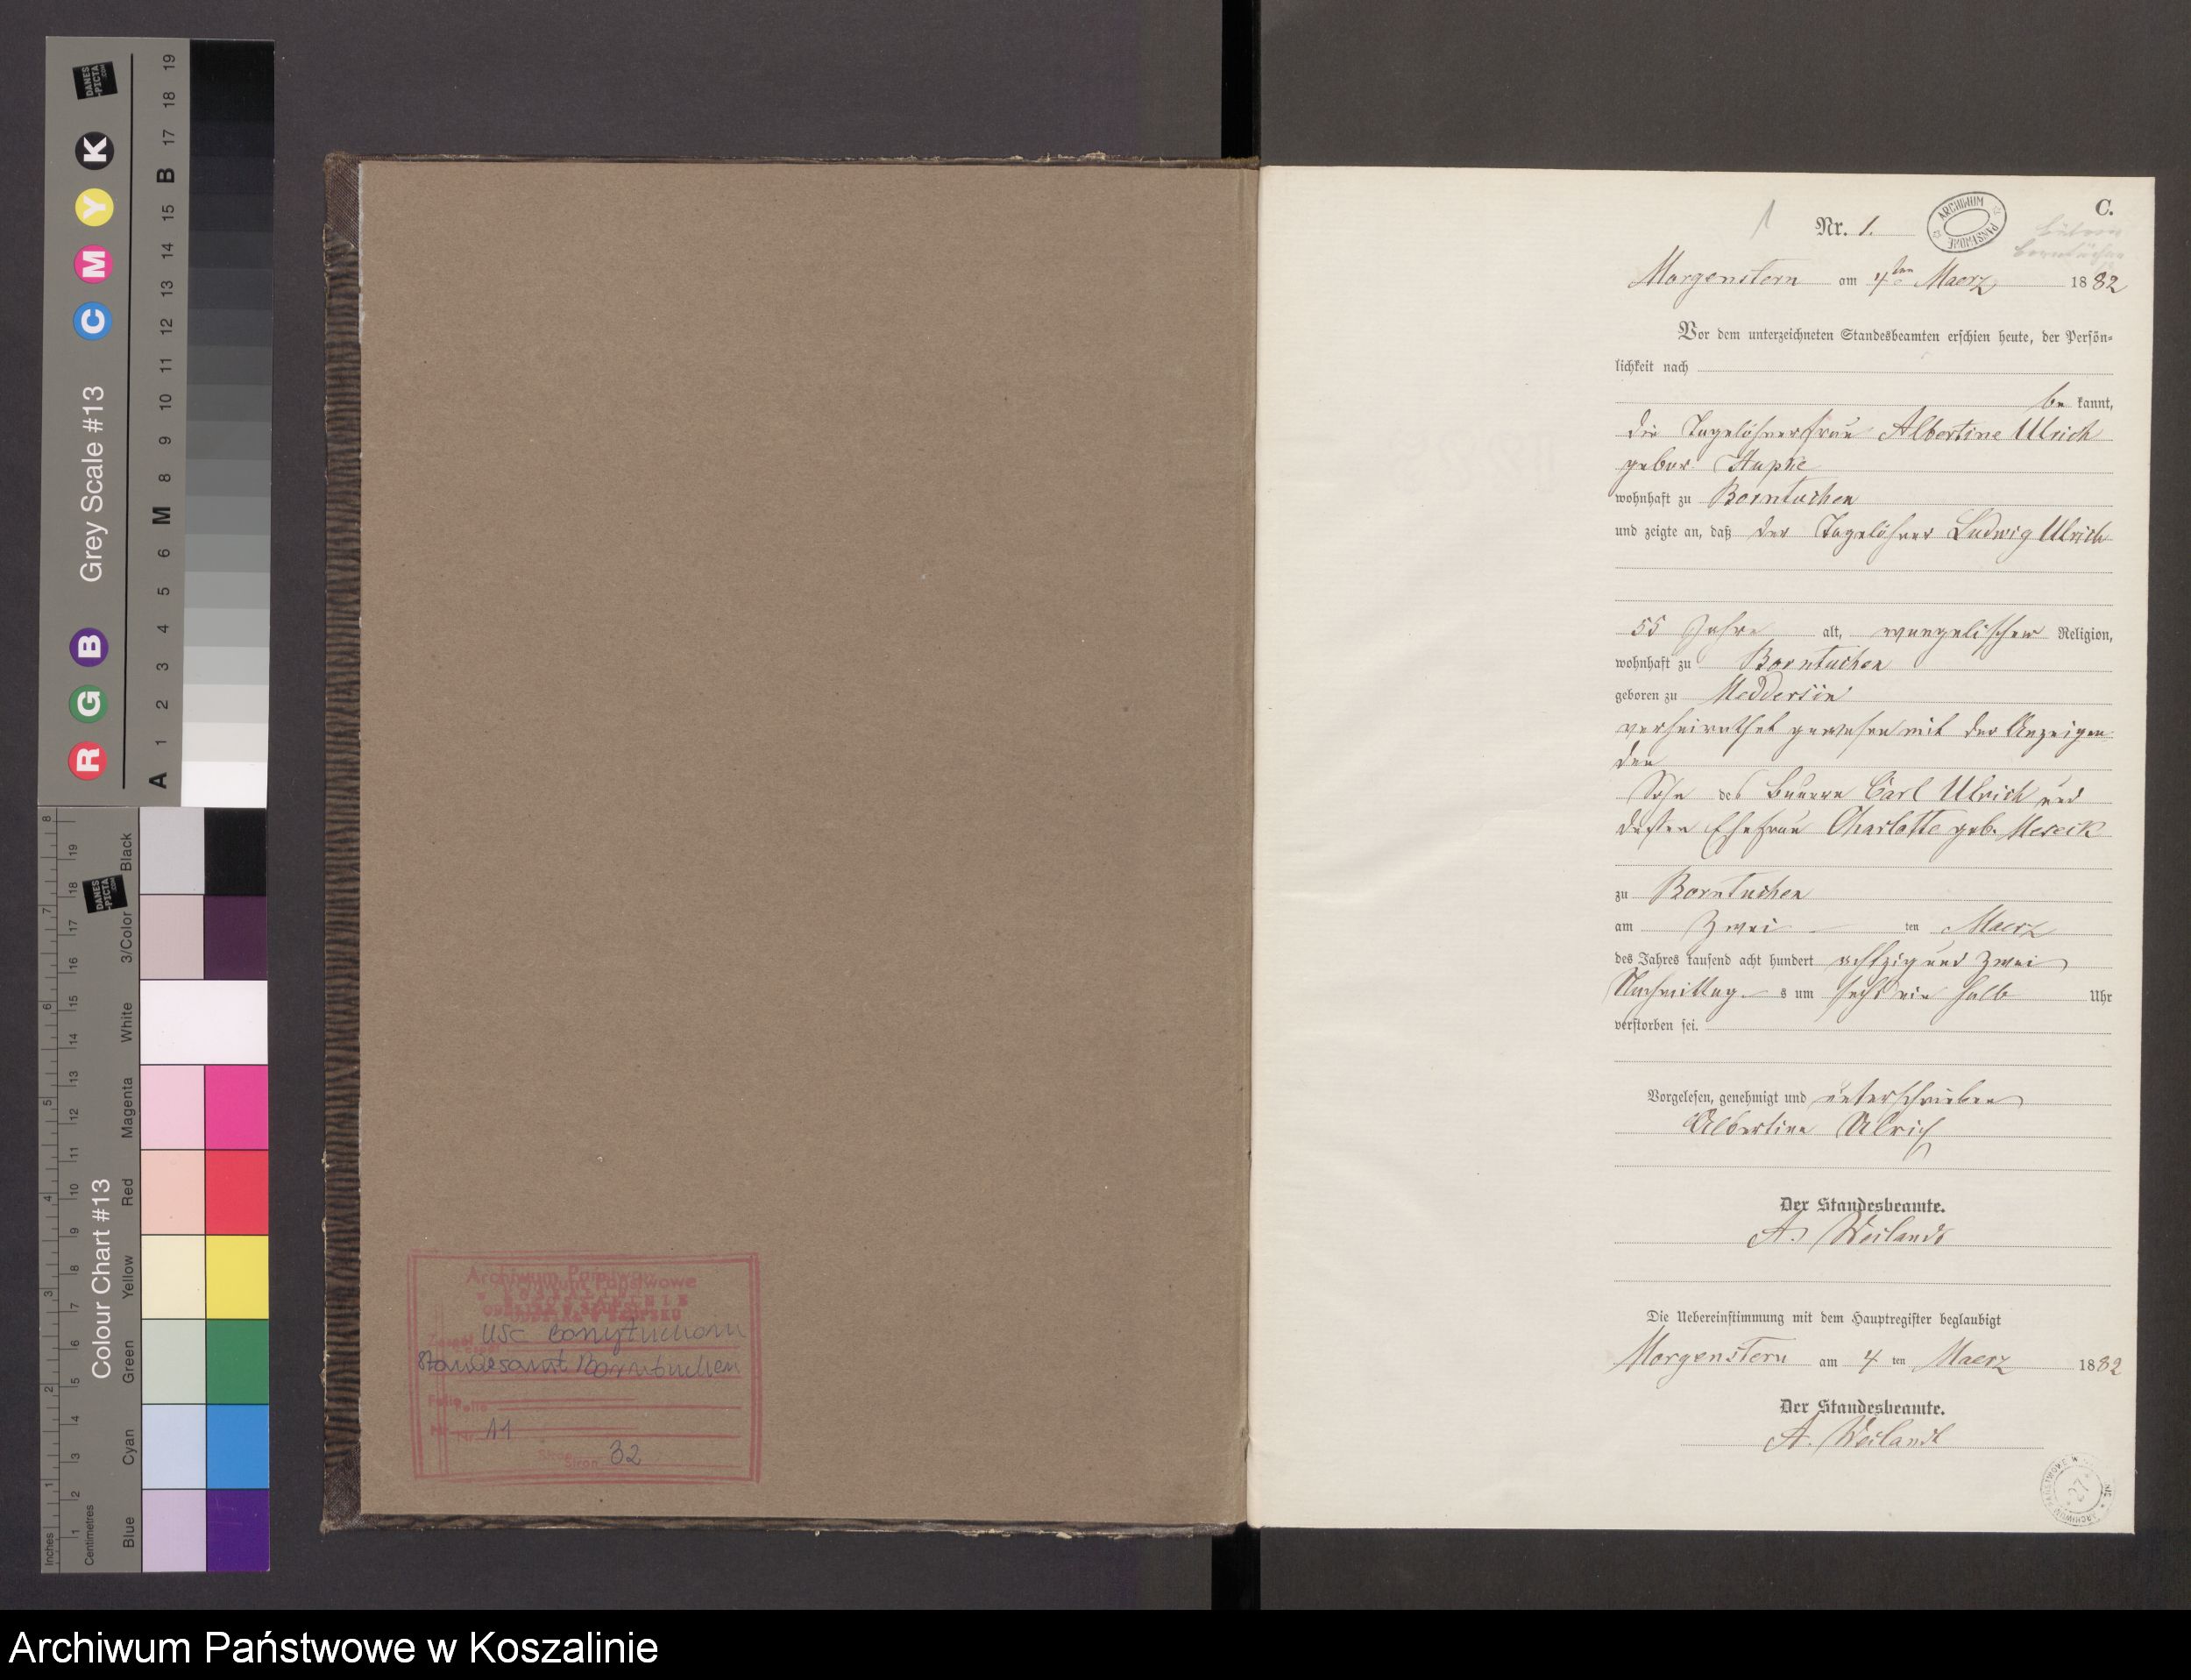 Grey Scale #13
A 1 2 3 4 5 6 M 8 9 10 11 12 13 14 15 B 17 18 19
R G B
C M Y K
DANES
-PICTA
.COM
Colour Chart #13
Blue Cyan Green Yellow Red Magenta White 3/Color Black
Inches
Centimetres
DANES
-PICTA
.COM
Archiwum Państwowe
USC Borzytuchom
Standesamt Borntuchen
Folio
Nr. 11
Stron 32
C.
1
Nr. 1.
ARCHIWUM PAŃSTWOWE
Morgenstern am 4ten Maerz 1882
Vor dem unterzeichneten Standesbeamten erschien heute, der Persön-
lichkeit nach
be kannt,
die Tagelöhnerfrau Albertine Ulrich
gebor.
wohnhaft zu Borntuchen
und zeigte an, daß der Tagelöhner Ludwig Ulrich
55 Jahre alt, evangelischer Religion,
wohnhaft zu Borntuchen
geboren zu Meddersin
verheirathet gewesen mit der Anzeigen-
den
Sohn des Bauern Carl Ulrich und
dessen Ehefrau Charlotte geb. Meseck
zu Borntuchen
am zwei ten Maerz
des Jahres tausend acht hundert achtzig und zwei
Nachmittag s um sechs ein halb Uhr
verstorben sei.
Vorgelesen, genehmigt und unterschrieben
Albertine Ulrich
Der Standesbeamte.
A. Weilandt
Die Uebereinstimmung mit dem Hauptregister beglaubigt
Morgenstern am 4 ten Maerz 1882
Der Standesbeamte.
A. Weilandt
Archiwum Państwowe w Koszalinie